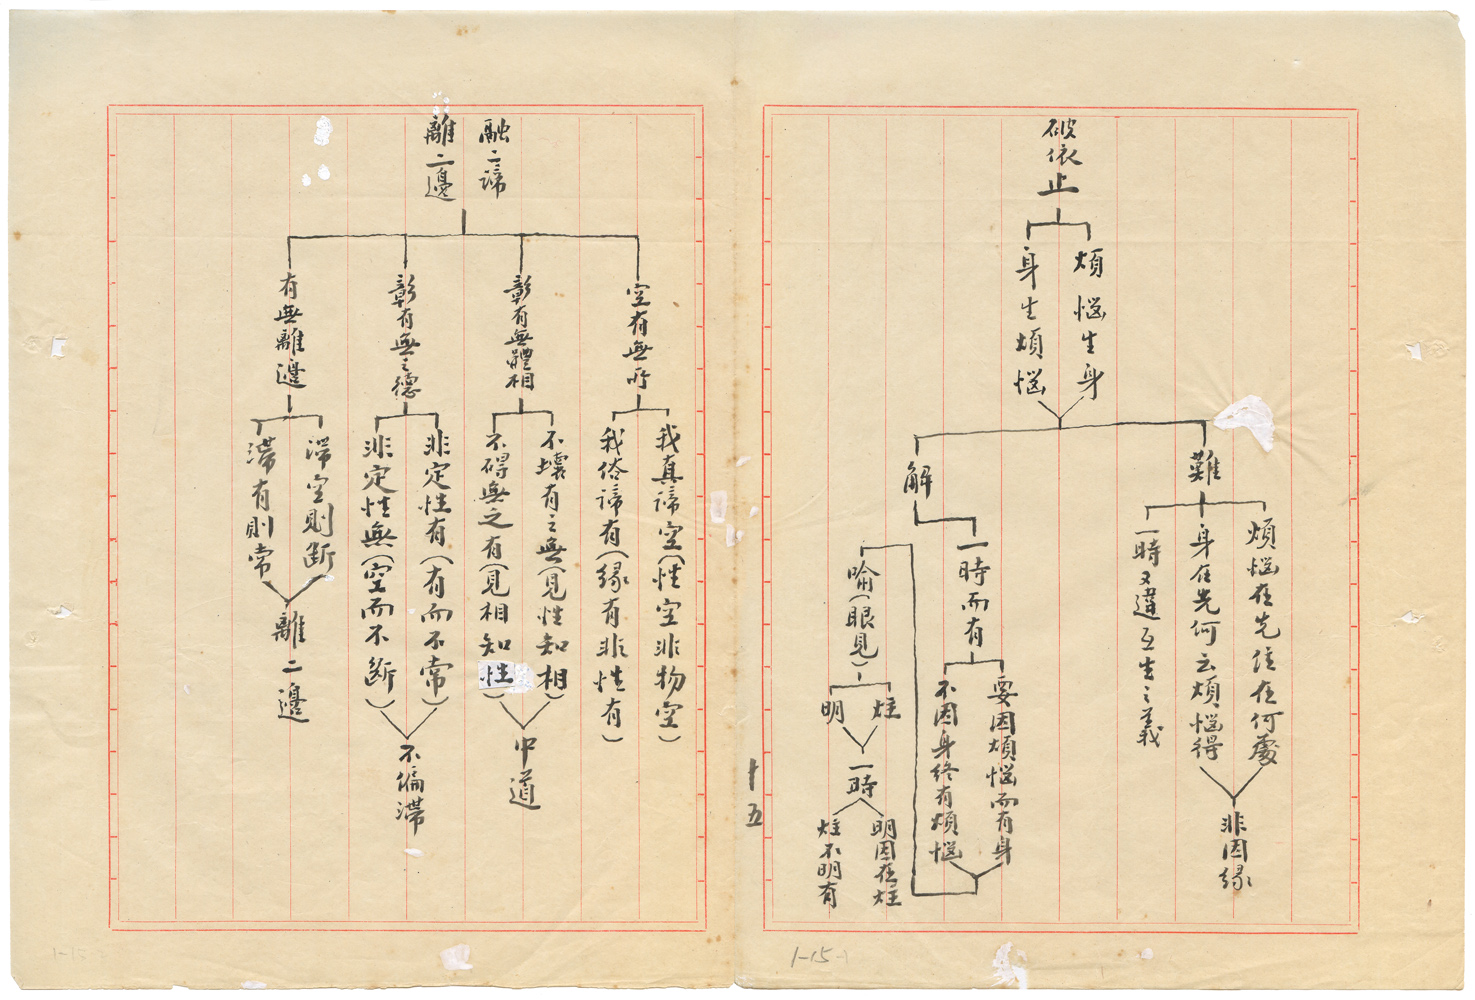 破依止
煩惱生身
身生煩惱
難
煩惱在先住在何處
身在先何云煩惱得
非因緣
一時又違互生之義
解
一時而有
要因煩惱而有身
不因身終有煩惱
喻(眼見)
炷
明
一時
明因在炷
炷不明有
十五
1-15-1
融二諦
離二邊
空有無所
我真諦空(性空非物空)
我俗諦有(緣有非性有)
彰有無體相
不壞有之無(見性知相)
不碍無之有(見相知性)
中道
彰有無之德
非定性有(有而不常)
非定性無(空而不斷)
不偏滯
有無離邊
滯空則斷
滯有則常
離二邊